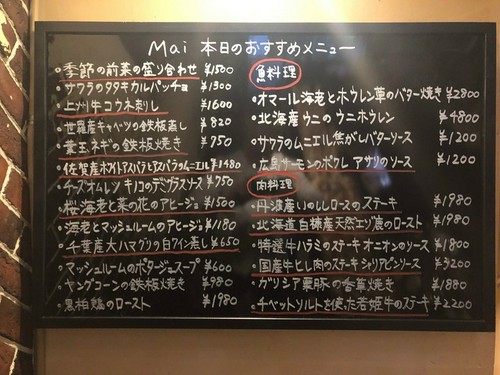 Mai 本日のおすすめメニュー
・季節の前菜の盛り合わせ ¥1500
・サワラのタタキカルパッチョ ¥1300
・上州牛コウネ刺し ¥1600
・世羅産キャベツの鉄板蒸し ¥820
・葉玉ネギの鉄板焼き ¥750
・佐賀産ホワイトアスパラとアスパラのムニエル ¥1480
・チーズオムレツ キノコのデミグラスソース ¥750
・桜海老と菜の花のアヒージョ ¥1500
・海老とマッシュルームのアヒージョ ¥1180
・千葉産大ハマグリの白ワイン蒸し ¥650
・マッシュルームのポタージュスープ ¥600
・ヤングコーンの鉄板焼き ¥980
・黒柏鶏のロースト ¥1980
魚料理
・オマール海老とホウレン草のバター焼き ¥2800
・北海産ウニのウニホウレン ¥4800
・サワラのムニエル焦がしバターソース ¥1200
・広島サーモンのポワレ アサリのソース ¥1200
肉料理
・丹波産いのししロースのステーキ ¥1980
・北海道白糠産天然エゾ鹿のロースト ¥1980
・特選牛ハラミのステーキ オニオンのソース ¥1800
・国産牛ヒレ肉のステーキ シャリアピンソース ¥3200
・ガリシア栗豚の香草焼き ¥1880
・チベットソルトを使った若姫牛のステーキ ¥2200